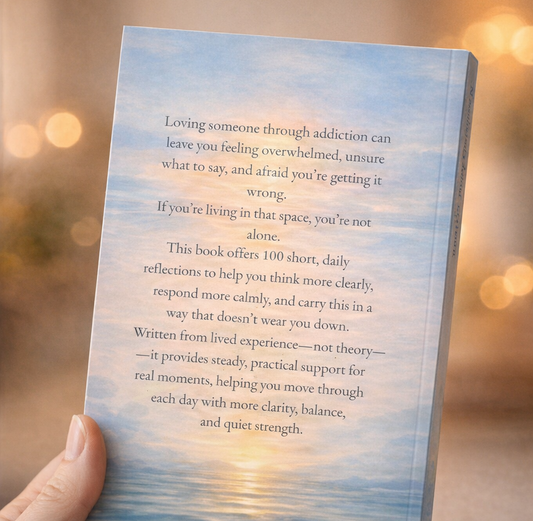 Loving someone through addiction can
leave you feeling overwhelmed, unsure
what to say, and afraid you're getting it
wrong.
If you're living in that space, you're not
alone.
This book offers 100 short, daily
reflections to help you think more clearly,
respond more calmly, and carry this in a
way that doesn't wear you down.
Written from lived experience—not theory—
—it provides steady, practical support for
real moments, helping you move through
each day with more clarity, balance,
and quiet strength.